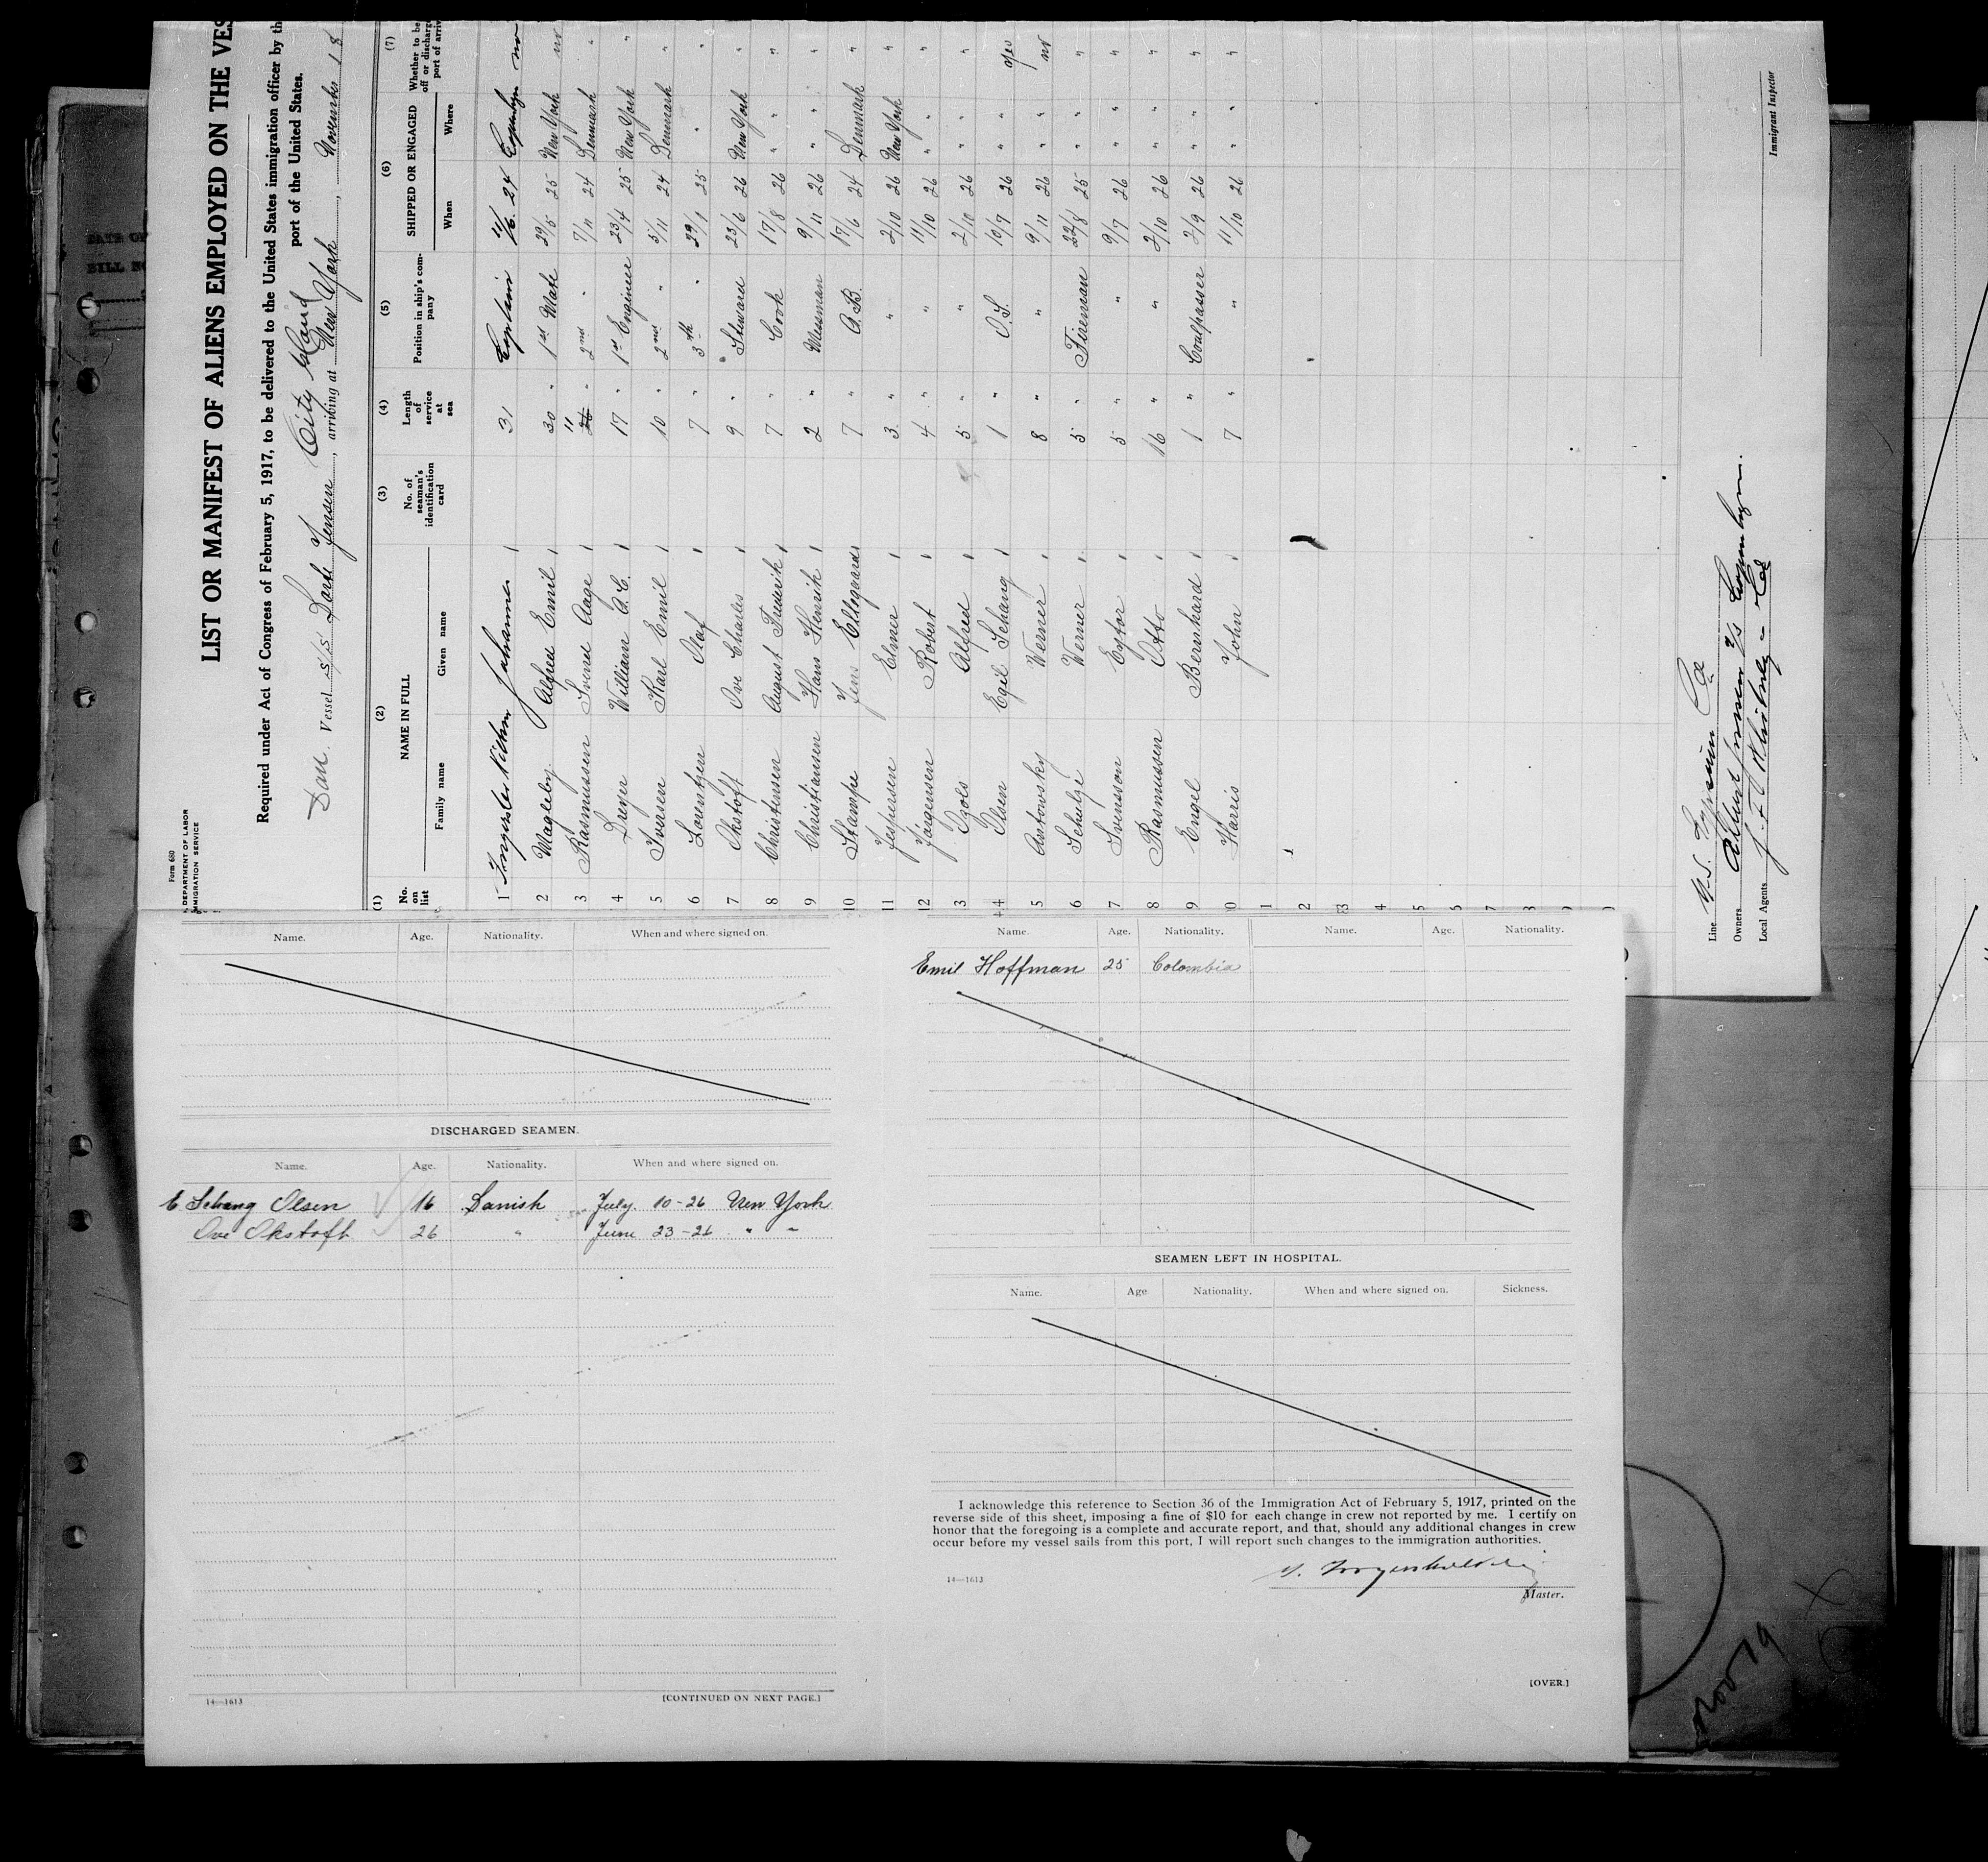 Form 680
DEPARTMENT OF LABOR
IMMIGRATION SERVICE
LIST OR MANIFEST OF ALIENS EMPLOYED ON THE VES
Required under Act of Congress of February 5, 1917, to be delivered to the United States immigration officer by th
port of the United States.
Dan. Vessel S/S Dorte Jensen, arriving at New York, November 18
City Island
(1) (2) (3) (4) (5) (6) (7)
No. on list NAME IN FULL No. of seaman's identification card Length of service at sea Position in ship's company SHIPPED OR ENGAGED Whether to be off or discharg port of arriv
Family name Given name When Where
1 Johannes 31 Captain 11/6. 24 Copenhagen no
2 Magleby Alfred Emil 30 " 1st Mate 29/5 25 New York no
3 Rasmussen Svend Aage 11 " 2nd " 7/11 24 Denmark "
4 Dreyer William A.C. 17 " 1st Engineer 23/4 25 New York "
5 Iversen Karl Emil 10 " 2nd " 5/11 24 Denmark "
6 Lorentzen Olaf 7 " 3th " 29/1 25 " "
7 Okstoft Ove Charles 9 " Steward 23/6 26 New York "
8 Christensen August Frederik 7 " Cook 17/8 26 " "
9 Christiansen Hans Henrik 2 " Messman 9/11 26 " "
10 Stampe Jens Ellegaard 7 " A.B. 17/6 24 Denmark "
11 Jespersen Elmer 3 " " 2/10 26 New York "
12 Jörgensen Robert 4 " " 11/10 26 " "
3 Ozols Alfred 5 " " 2/10 26 " "
4 Olsen Egil Schang 1 " O.S. 10/7 26 " yes
5 Antowsky Werner 8 " " 9/11 26 " no
6 Schulze Verner 5 " Fireman 22/8 25 " "
7 Svensson Extor 5 " " 9/7 26 " "
8 Rasmussen Otto 16 " " 2/10 26 " "
9 Engel Bernhard 1 " Coalpasser 2/9 26 " "
0 Harris John 7 " " 11/10 26 " "
1
2
3
4
5
6
7
8
9
0
Line U.S. Gypsum Co
Owners Albert Jensen A/S Copenhagen.
Local Agents J. F. Whitney & Co
Immigrant Inspector
Name. Age. Nationality. When and where signed on.
DISCHARGED SEAMEN.
Name. Age. Nationality. When and where signed on.
E Schang Olsen 16 Danish July. 10-26 New York
Ove Okstoft 26 " June 23-26 " "
14—1613
[CONTINUED ON NEXT PAGE.]
Name. Age. Nationality. Name. Age. Nationality.
Emil Hoffman 25 Colombia
SEAMEN LEFT IN HOSPITAL.
Name. Age Nationality. When and where signed on. Sickness.
I acknowledge this reference to Section 36 of the Immigration Act of February 5, 1917, printed on the
reverse side of this sheet, imposing a fine of $10 for each change in crew not reported by me. I certify on
honor that the foregoing is a complete and accurate report, and that, should any additional changes in crew
occur before my vessel sails from this port, I will report such changes to the immigration authorities.
14—1613
Master.
[OVER.]
DATE OF
BILL NO